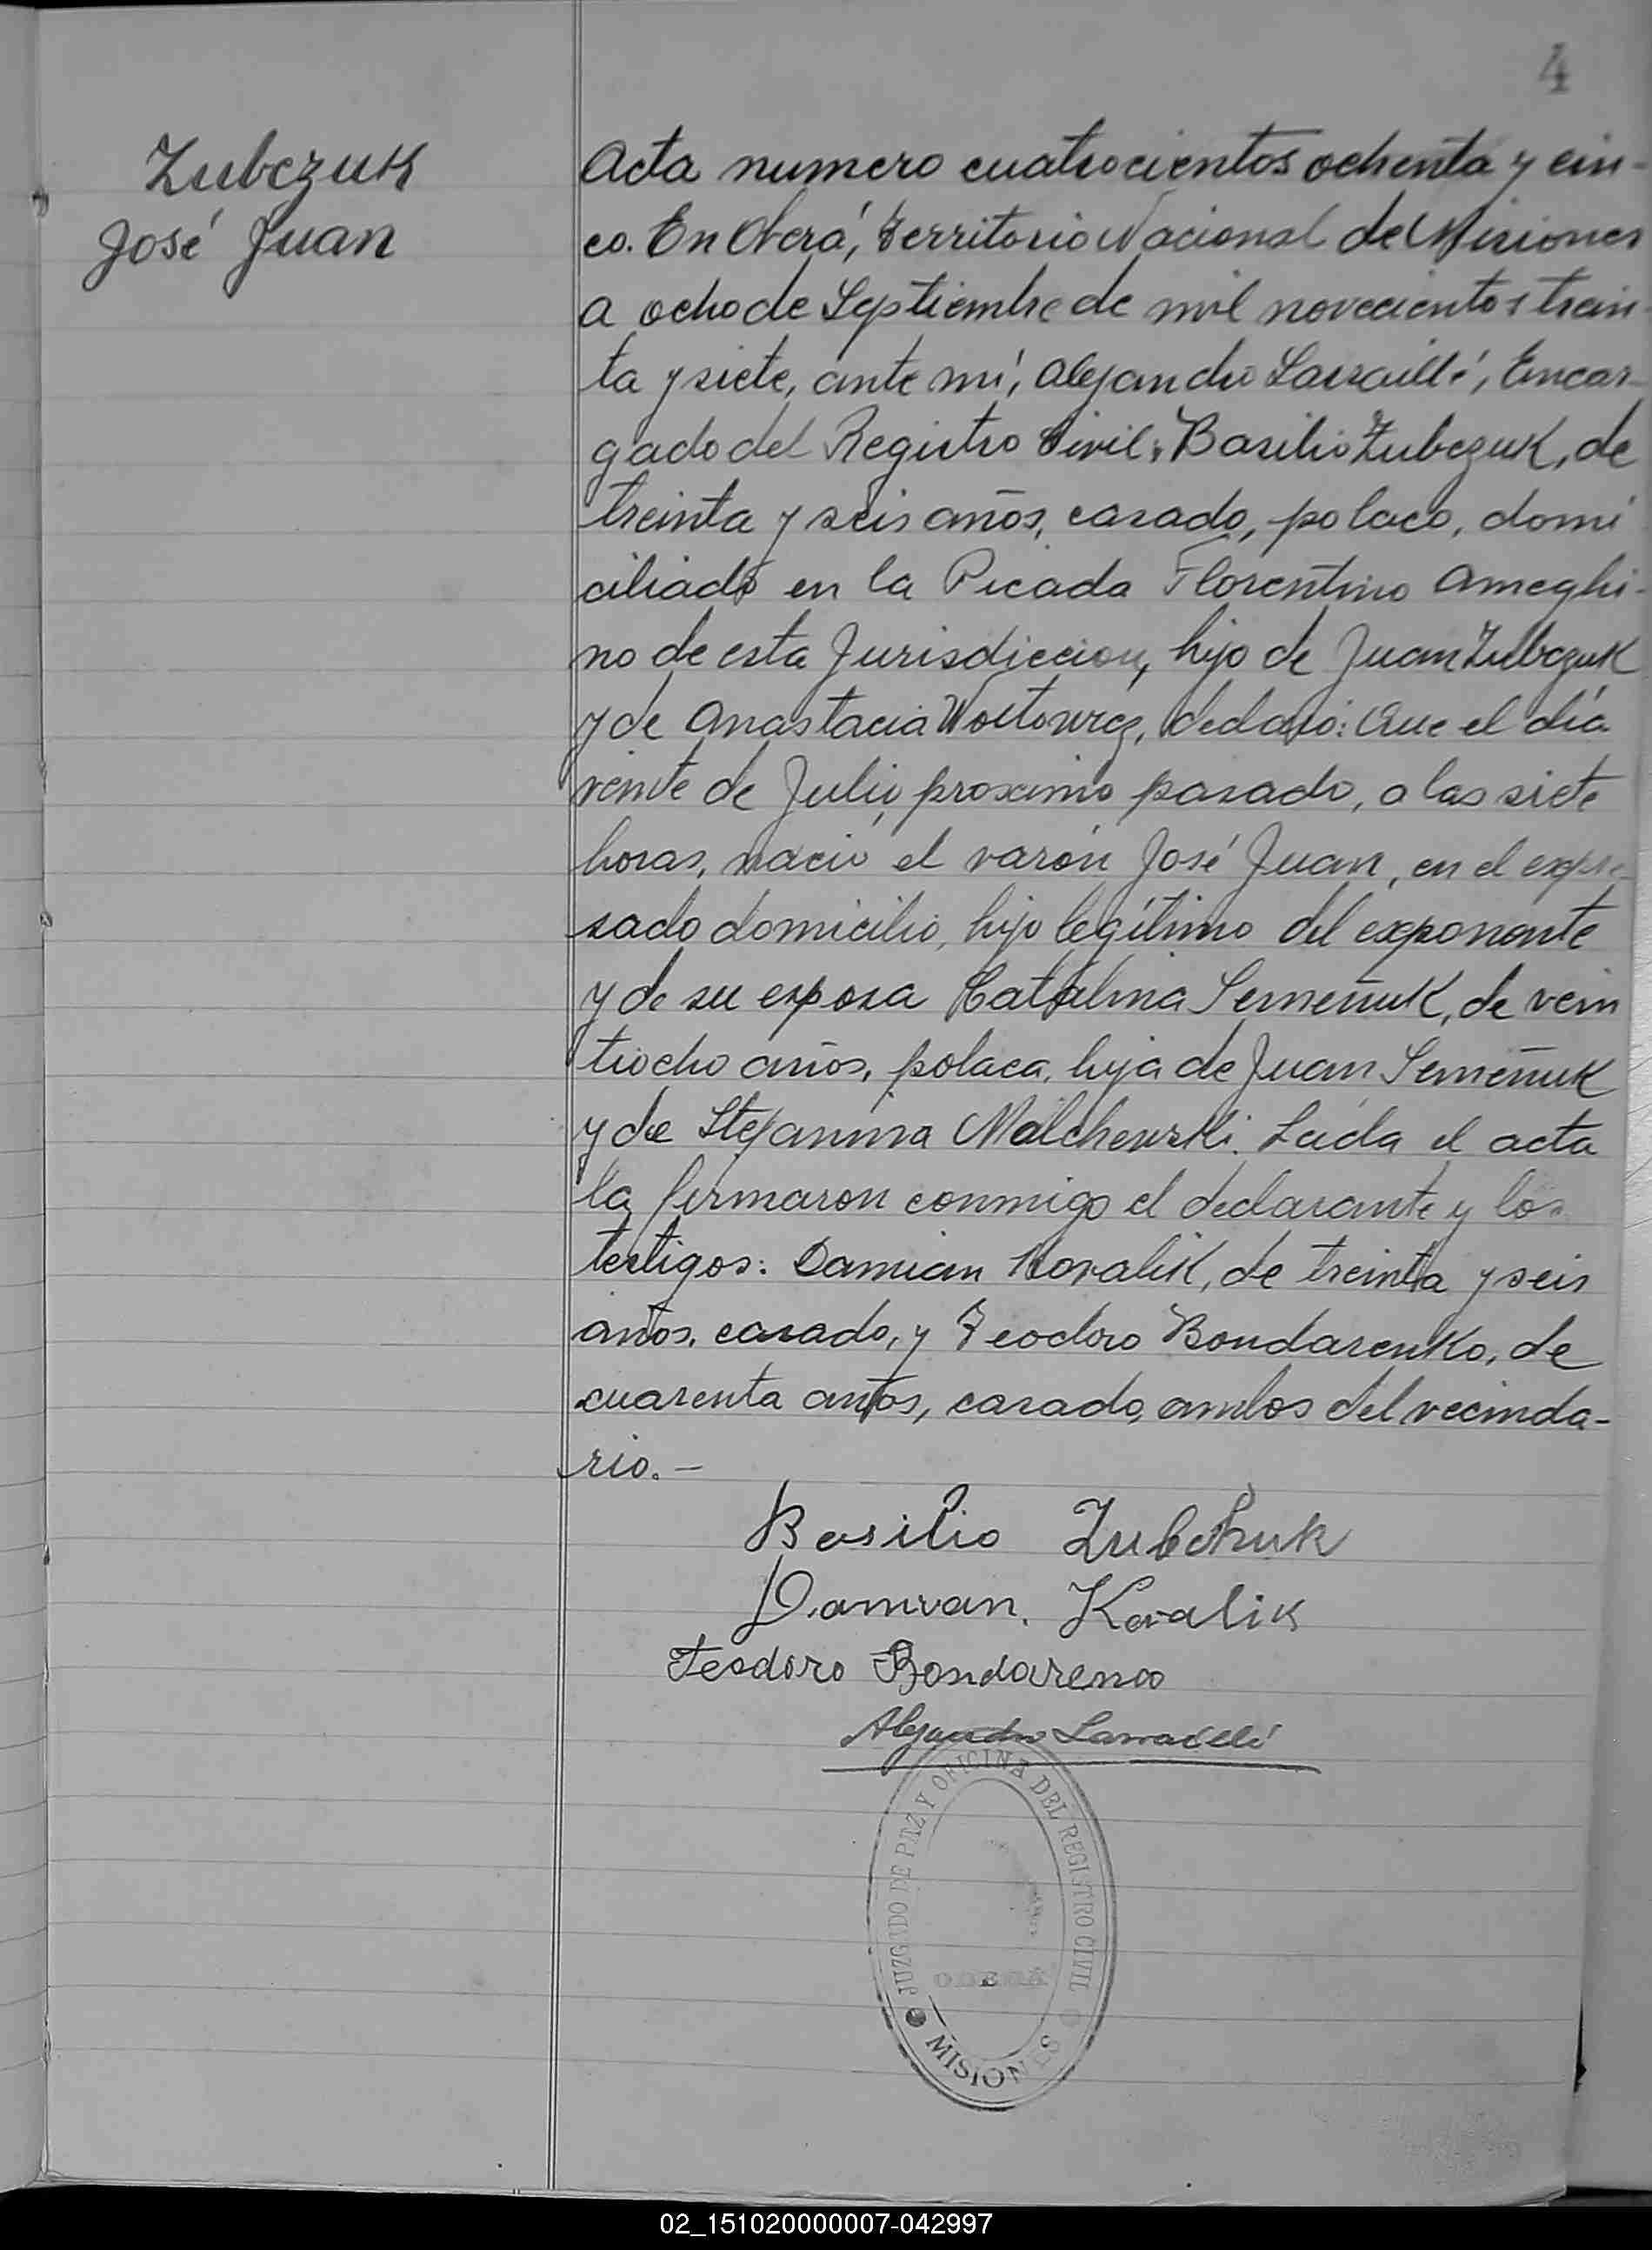 4
Zubczuk
José Juan
Acta numero cuatrocientos ochenta y cin-
co. En Oberá, Territorio Nacional de Misiones
a ocho de Septiembre de mil novecientos trein-
ta y siete, ante mí, Alejandro Larraillé, Encar-
gado del Registro Civil: Basilio Zubczuk, de
treinta y seis años, casado, polaco, domi
ciliado en la Picada Florentino Ameghi-
no de esta Jurisdiccion, hijo de Juan Zubczuk
y de Anastacia Woitowicz, declaró: Que el día
veinte de Julio, proximo pasado, a las siete
horas, nació el varón José Juan, en el expre-
sado domicilio, hijo legítimo del exponente
y de su esposa Catalina Semeñuk, de vein
tiocho años, polaca, hija de Juan Semeñuk
y de Stefanina Malchewski. Leída el acta
la firmaron conmigo el declarante y los
testigos: Damian Kovalik, de treinta y seis
años, casado, y Teodoro Bondarenko, de
cuarenta años, casado, ambos del vecinda-
rio.-
Basilio Zubchuk
Damian. Kovalik
Teodoro Bondarenco
Alejandro Larraillé
JUZGADO DE PAZ Y OFICINA DEL REGISTRO CIVIL
OBERÁ
MISIONES
02_151020000007-042997